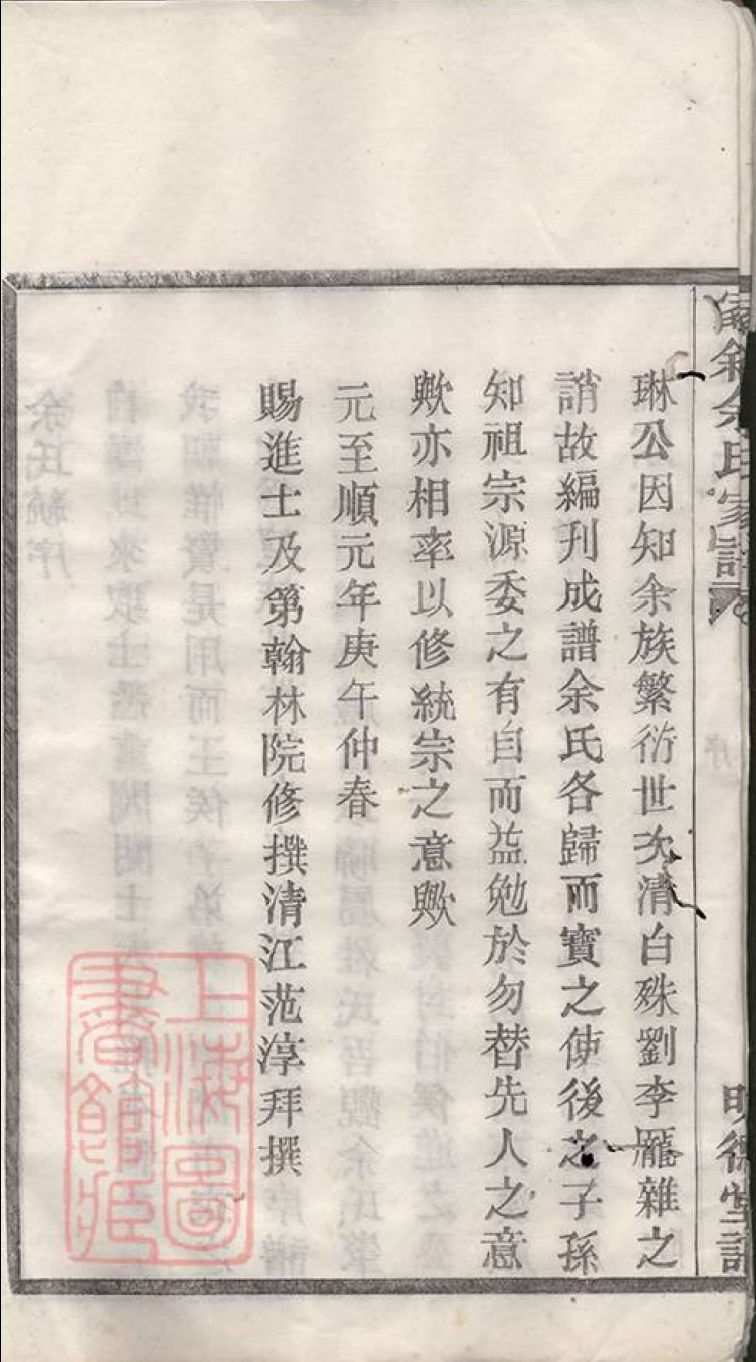 余氏家譜
序
明德堂譜
琳公因知余族繁衍世次清白殊劉李龐雜之
誚故編刋成譜余氏各歸而寶之使後之子孫
知祖宗源委之有自而益勉於勿替先人之意
歟亦相率以修統宗之意歟
元至順元年庚午仲春
賜進士及第翰林院修撰清江范淳拜撰
上海圖書館藏